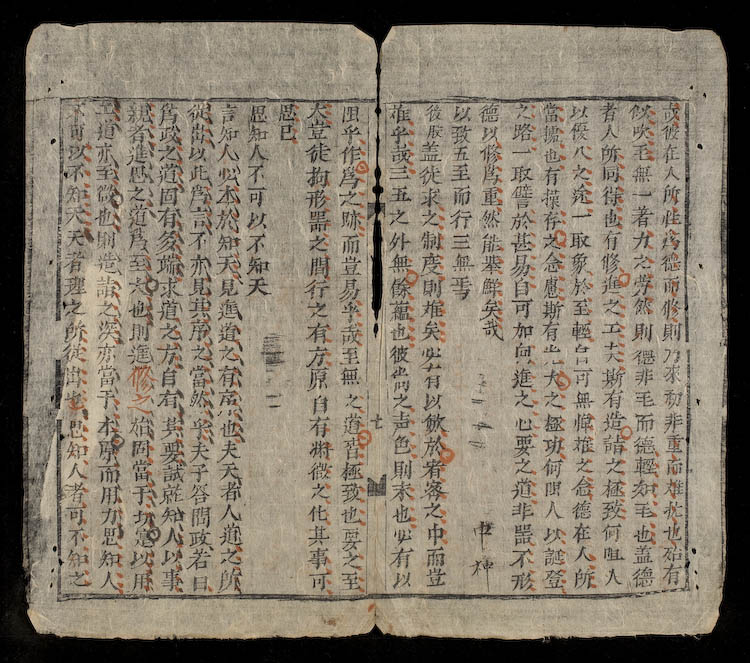 或彼在人所性爲德而修則乃來初非重而难扰也殆有
似吹毛無一着力之劳然則德非毛而德輕如毛也盖德
者人所同得也有修進之工夫斯有造詣之極致何咀人
以侵八之途一取象於至輕自可無惮难之念德在人所
當據也有操存之念慮斯有光大之極功何閉人以誕登
之路一取譬於甚易自可如向進之心要之道非器不形
德以修爲重然能舉鮮矣哉
以致五至而行三無焉
後股盖徒求之制度則难矣必有以敛於宥密之中而豈
难乎哉三五之外無餘蕴也彼尚之声色則末也必有以
泯乎作爲之跡而豈易乎哉至無之道皆極致也要之至
大豈徒拘形器之間行之有方原自有将微之化其事可
思已
思知人不可以不知天
言知人必本於知天見進道之有序也夫天者人道之所
從出以此爲言不亦見其序之當然乎夫子答問政若曰
爲政之道固有多端求道之方自有其要試就知人以事
親者進思之道爲至大也則進修之始固當于坊堂以用
工道亦至微也則造詣之深亦當于本原而用力思知人
不可以不知天天者理之所從出也思知人者可不知之
七
中神